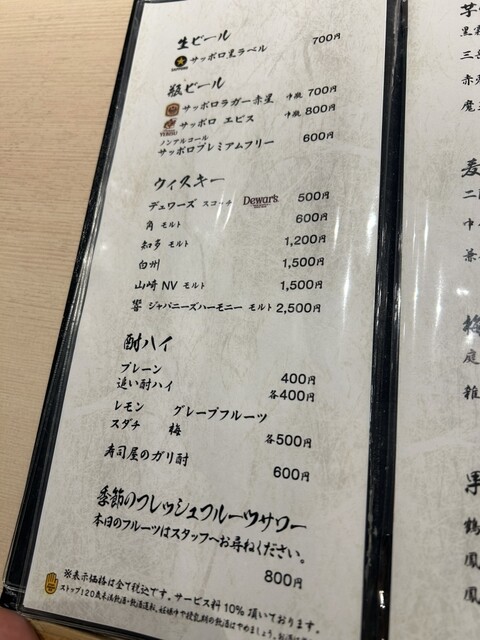 生ビール
サッポロ黒ラベル 700円
瓶ビール
サッポロラガー赤星 中瓶 700円
サッポロ エビス 中瓶 800円
ノンアルコール
サッポロプレミアムフリー 600円
ウィスキー
デュワーズ スコッチ Dewar's 500円
角 モルト 600円
知多 モルト 1,200円
白州 1,500円
山崎 NV モルト 1,500円
響 ジャパニーズハーモニー モルト 2,500円
酎ハイ
プレーン 400円
追い酎ハイ 各400円
レモン グレープフルーツ
スダチ 梅 各500円
寿司屋のガリ酎 600円
季節のフレッシュフルーツサワー
本日のフルーツはスタッフへお尋ねください。
800円
※表示価格は全て税込です。サービス料10%頂いております。
ストップ!20歳未満飲酒・飲酒運転。妊娠中や授乳期の飲酒はやめましょう。
芋
黒
三
赤
魔
麦
二
中
兼
梅
庭
雑
果
鶴
鳳
鳳